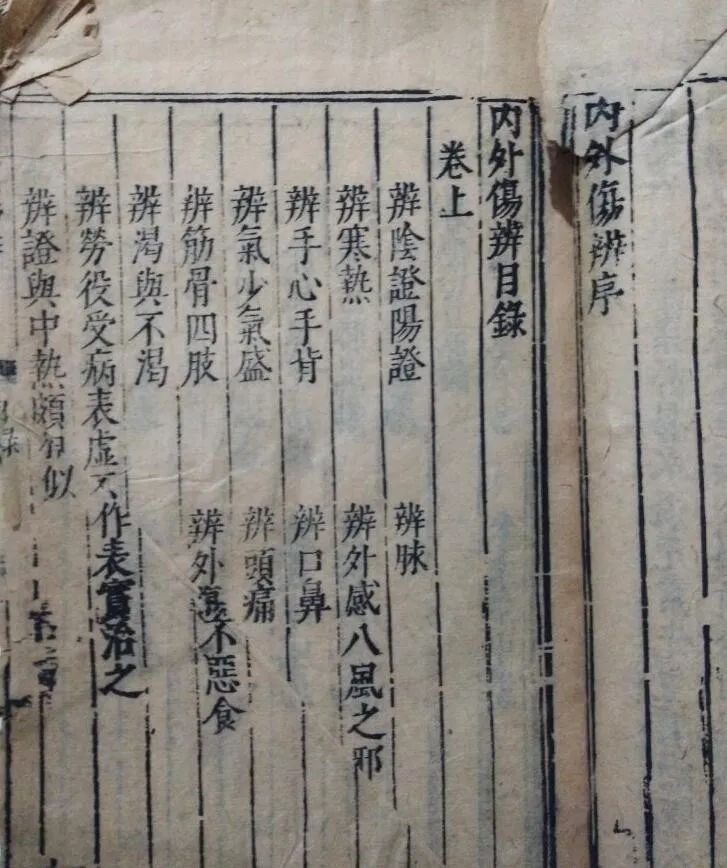 内外傷辨序
内外傷辨目錄
卷上
辨陰證陽證 辨脉
辨寒熱 辨外感八風之邪
辨手心手背 辨口鼻
辨氣少氣盛 辨頭痛
辨筋骨四肢 辨外傷不惡食
辨渴與不渴
辨勞役受病表虛不作表實治之
辨證與中熱頗相似